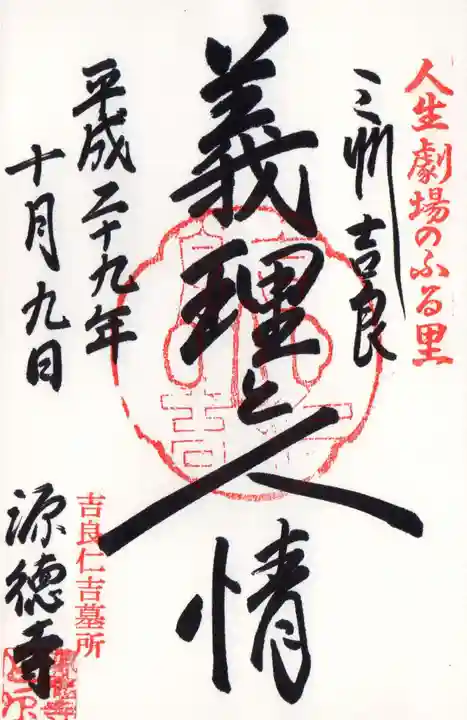 人生劇場のふる里
三州吉良
義理と人情
平成二十九年
十月九日
吉良仁吉墓所
源徳寺